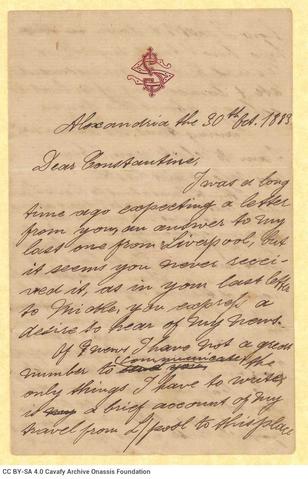 Alexandria the 30th Oct. 1883
Dear Constantine,
I was a long
time ago expecting a letter
from you, an answer to my
last one from Liverpool, but
it seems you never recei-
ved it, as in your last letter
to Mickès, you express a
desire to hear of my news.
Of news I have not a great
number to send you communicate the
only things I have to write
is a brief account of my
travel from L/pool to this place
CC BY-SA 4.0 Cavafy Archive Onassis Foundation